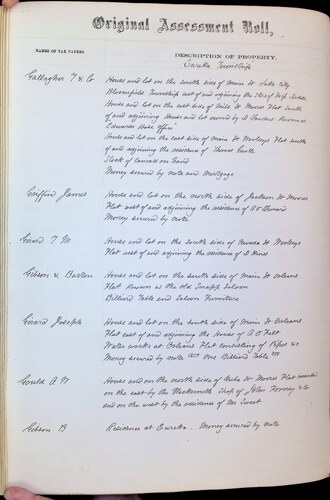 Original Assessment Roll,
NAMES OF TAX PAYERS.
DESCRIPTION OF PROPERTY.
Eureka Township
Gallagher T & Co
House and lot on the South side of Main St Lake City
Bloomfield Township east of and adjoining the
House and lot on the east side of Main St Moores Flat South
of and adjoining House and lot owned by known as
Edwards Hall Office
House and lot on the east side of Main St Woolseys Flat South
of and adjoining the residence of Thomas
Stock of on hand
Money secured by note and mortgage
Griffin James
House and lot on the north side of Jackson St Moores
Flat east of and adjoining the residence of
Money secured by note
Geard T M
House and lot on the South side of Nevada St Woolseys
Flat east of and adjoining the residence of D Hines
Gibson & Barton
House and lot on the South side of Main St Orleans
Flat Known as the old Saloon
Billiard Table and Saloon Furniture
Girard Joseph
House and lot on the South side of Main St Orleans
Flat South of and adjoining the House of A O
Water works at Orleans Flat consisting of Pipes &c
Money secured by note One Billiard Table
Gould A W
House and on the north side of Moores Flat
on the east by the Blacksmith Shop of & Co
and on the west by the residence of Mr Sweet
Gibson B
Residence at Eureka. Money secured by note